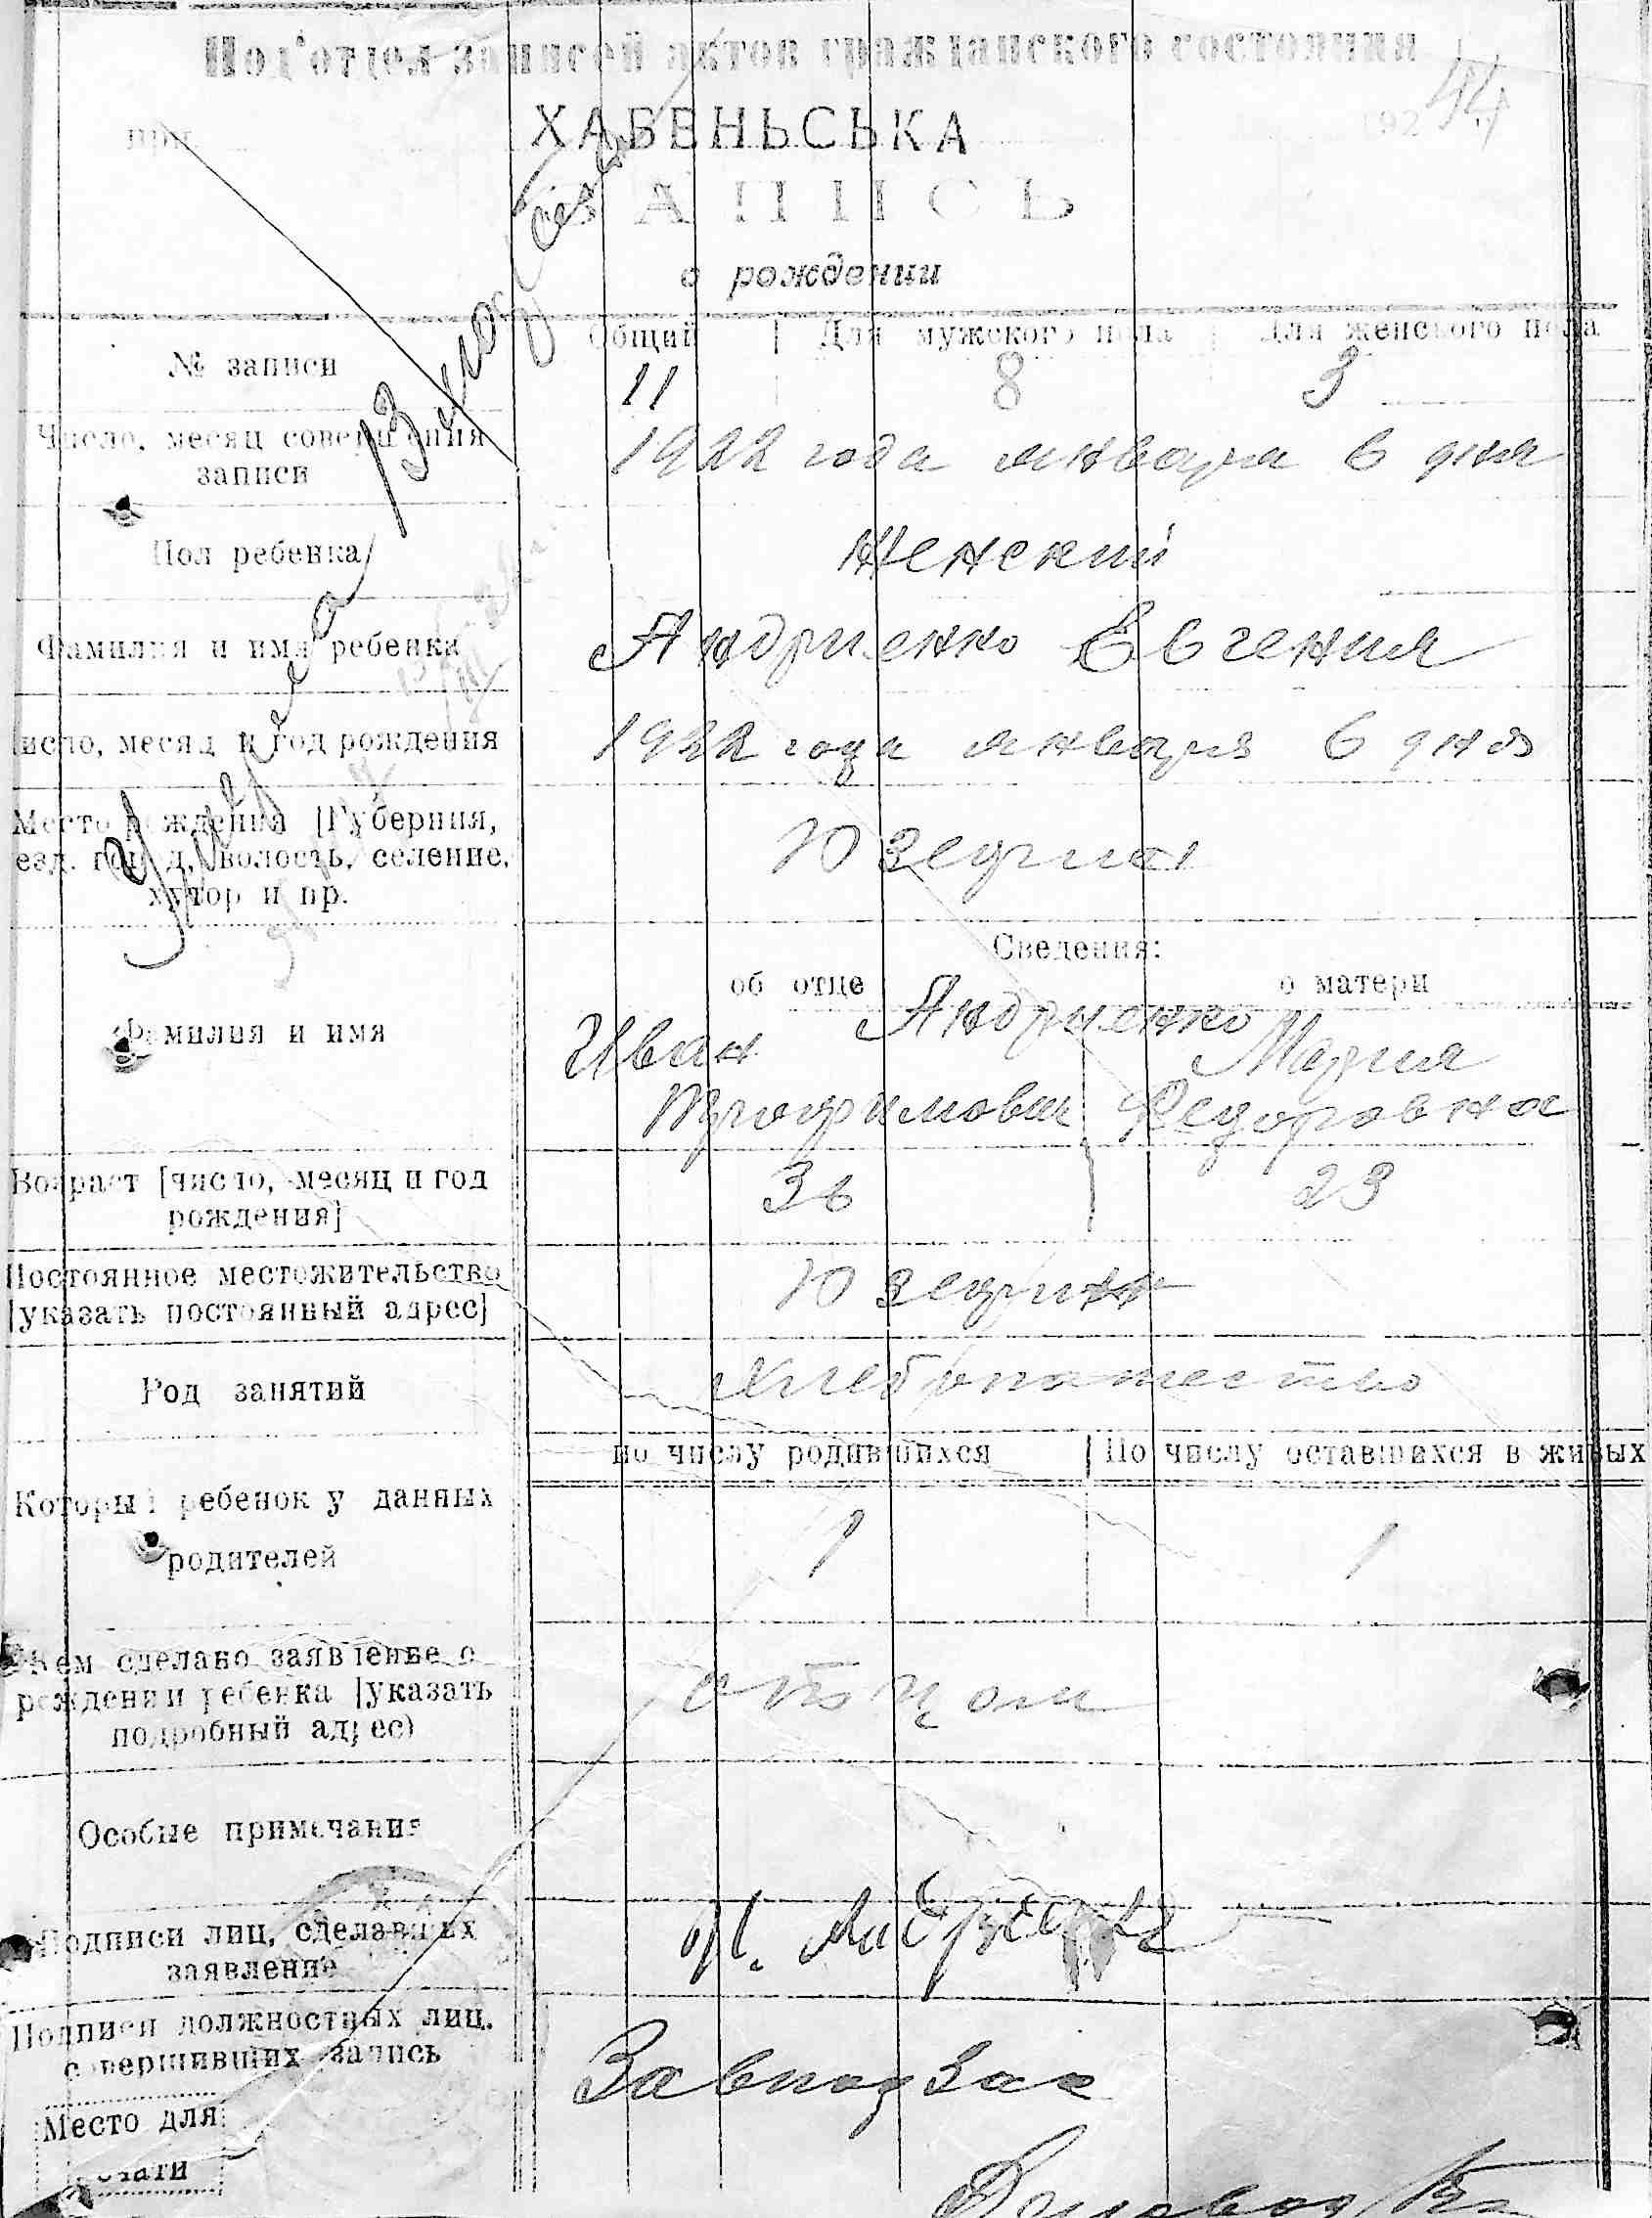 Под'отдел записей актов гражданского состояния
44
при ХАБЕНЬСЬКА 192
ЗАПИСЬ
о рождении
Общий Для мужского пола Для женского пола
№ записи 11 8 3
Число, месяц совершения
записи
1922 года января 6 дня
Пол ребенка Женский
Фамилия и имя ребенка Андриенко Евгения
Число, месяц и год рождения 1922 года января 6 дня
Место рождения [Губерния,
уезд, город, волость, селение,
хутор и пр.
Юзефин
Сведения:
об отце о матери
Андриенко
Фамилия и имя Иван Мария
Трофимович Федоровна
Возраст [число, месяц и год
рождения]
36 23
Постоянное местожительство
[указать постоянный адрес]
Юзефин
Род занятий Хлебопашество
по числу родившихся По числу оставшихся в живых
Который ребенок у данных
родителей
1 1
Кем сделано заявление о
рождении ребенка [указать
подробный адрес)
отцом
Особые примечания
Подписи лиц, сделавших
заявление
Подписи должностных лиц,
совершивших запись
Завподзаг
Место для
печати